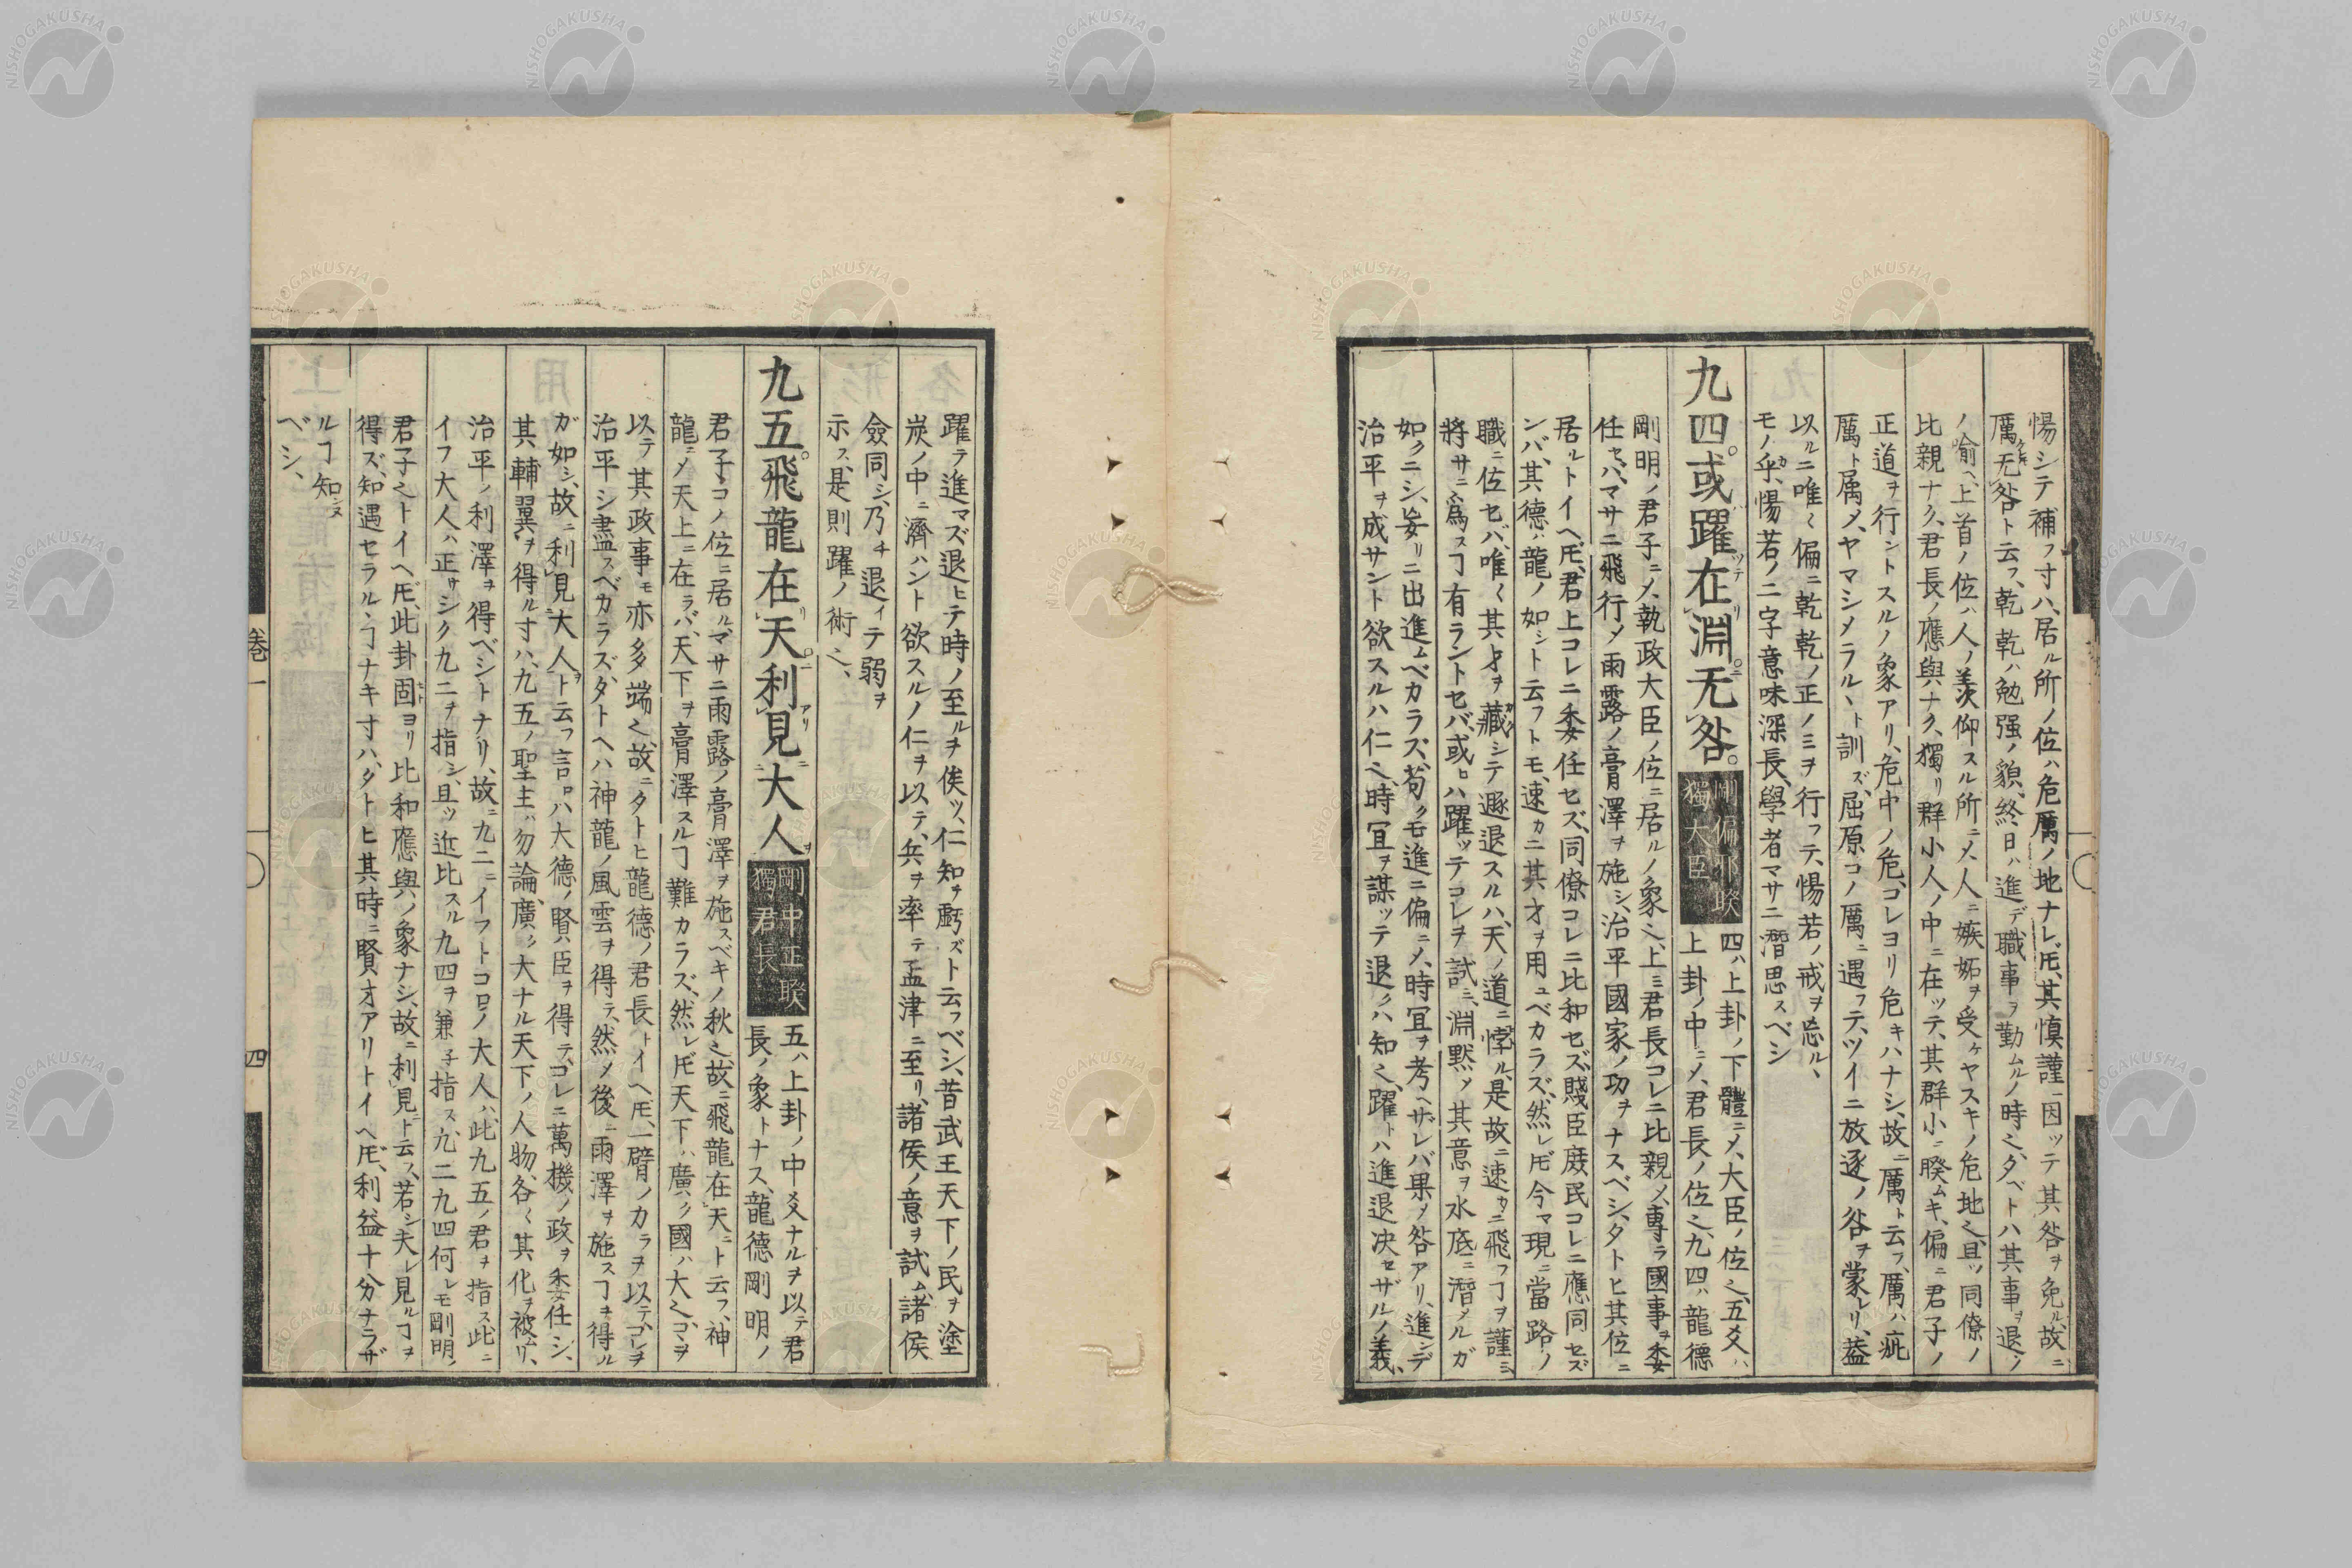 惕シテ補フ寸ハ、居ル所ノ位ハ危厲ノ地ナレ𪜈、其慎謹ニ因ッテ其咎ヲ免ル、故ニ
厲无咎ト云フ、乾乾ハ勉强ノ貌、終日ハ進デ職事ヲ勤ムルノ時之、夕ベトハ其事ヲ退ノ
ノ喻ヘ、上首ノ位ハ人ノ羨仰スル所ニ〆、人ニ嫉妬ヲ受ケヤスキノ危地之、且ツ同僚ノ
比親ナク、君長ノ應與ナク、獨リ群小人ノ中ニ在ッテ、其群小ニ睽ムキ、偏ニ君子ノ
正道ヲ行ントスルノ象アリ、危中ノ危、コレヨリ危キハナシ、故ニ厲ト云フ、厲ハ疵
厲ト属〆、ヤマシメラルヽト訓ズ、屈原コノ厲ニ遇フテ、ツイニ放逐ノ咎ヲ蒙レリ、益
以ルニ唯〱偏ニ乾乾ノ正ノミヲ行フテ、惕若ノ戒ヲ忘ルヽ
モノ乎、惕若ノ二字意味深長、學者マサニ潛思スベシ
九四。或躍在淵。无咎。
剛偏邪睽
獨大臣
四ハ上卦ノ下體ニ〆、大臣ノ位之、五爻ハ
上卦ノ中ニ〆、君長ノ位之、九四ハ龍德
剛明ノ君子ニ〆、執政大臣ノ位ニ居ルノ象之、上ミ君長コレニ比親〆、專ラ國事ヲ委
任セハ、マサニ飛行〆雨露ノ膏澤ヲ施シ、治平國家ノ功ヲナスベシ、タトヒ其位ニ
居ルトイヘ𪜈、君上コレニ委任セズ、同僚コレニ比和セズ、賤臣庶民コレニ應同セズ
ンバ、其德ハ龍ノ如シト云フトモ、速カニ其才ヲ用ユベカラズ、然レ𪜈今マ現ニ當路ノ
職ニ位セバ、唯〱其才ヲ藏シテ遯退スルハ、天ノ道ニ悖ル、是故ニ速カニ飛フヿヲ謹ミ
將サニ爲スヿ有ラントセバ、或ヒハ躍ッテコレヲ試ミ、淵默〆其意ヲ水底ニ潛メルガ
如クニシ、妄リニ出進ムベカラズ、苟クモ進ニ偏ニ〆、時冝ヲ考ヘザレバ果〆咎アリ、進ンデ
治平ヲ成サント欲スルハ仁之、時冝ヲ謀ッテ退クハ知之、躍トハ進退决セザルノ義、
躍ラ進マズ退ヒテ時ノ至ルヲ俟ツ、仁知ヲ虧ズト云フベシ、昔武王天下ノ民ヲ塗
炭ノ中ニ濟ハント欲スルノ仁ヲ以テ、兵ヲ率テ孟津ニ至リ、諸侯ノ意ヲ試ム、諸侯
僉同シ、乃チ退イテ弱ヲ
示ス、是則躍ノ術之、
九五。飛龍在天。利見大人
剛中正睽
獨君長
五ハ上卦ノ中爻ナルヲ以テ君
長ノ象トナス、龍德剛明ノ
君子コノ位ニ居ル、マサニ雨露ノ膏澤ヲ施スベキノ秋之、故ニ飛龍在天ト云フ、神
龍ニ〆天上ニ在ラバ、天下ヲ膏澤スルヿ難カラズ、然レ𪜈天下ハ廣ク國ハ大之、コヽヲ
以テ其政事モ亦多端之、故ニタトヒ龍德ノ君長トイヘ𪜈、一臂ノカラヲ以テコレヲ
治平シ盡スベカラズ、タトヘハ神龍ノ風雲ヲ得テ、然〆後ニ雨澤ヲ施スヿヲ得ル
ガ如シ、故ニ利見大人ト云フ、言ロハ大德ノ賢臣ヲ得テ、コレニ萬機ノ政ヲ委任シ、
其輔翼ヲ得ル寸ハ、九五ノ聖主ハ勿論、廣ク大ナル天下ノ人物、各〱其化ヲ被ムリ、
治平ノ利澤ヲ得ベシトナリ、故ニ九二ニイフトコロノ大人ハ、此九五ノ君ヲ指ス此ニ
イフ大人ハ正サシク九二ヲ指シ、且ツ近比スル九四ヲ兼子指ス、九二九四何レモ剛明ノ
君子之トイヘ𪜈、此卦固ヨリ比和應與ノ象ナシ、故ニ利見ト云フ、若シ夫レ見ルヿヲ
得ズ、知遇セラルヽヿナキ寸ハ、タトヒ其時ニ賢才アリトイヘ𪜈、利益十分ナラザ
ルヿ知ンヌ
ベシ、
卷一
四
NISHOGAKUSHA